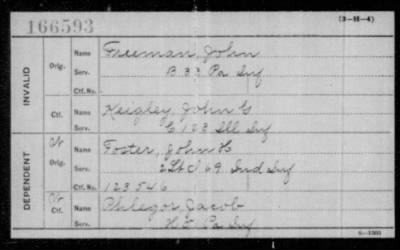 166593
(3-H-4)
INVALID
Orig.
Name Freeman, John
Serv. B 33 Pa Inf
Ctf. No.
Ctf.
Name Keigley, John G
Serv. C 123 Ill Inf
DEPENDENT
Orig.
Name Foster, John H
Serv. 2 Lt C 69 Ind Inf
Ctf. No. 123546
Ctf.
Name Phlegor Jacob
Serv. Pa Inf
6-1303